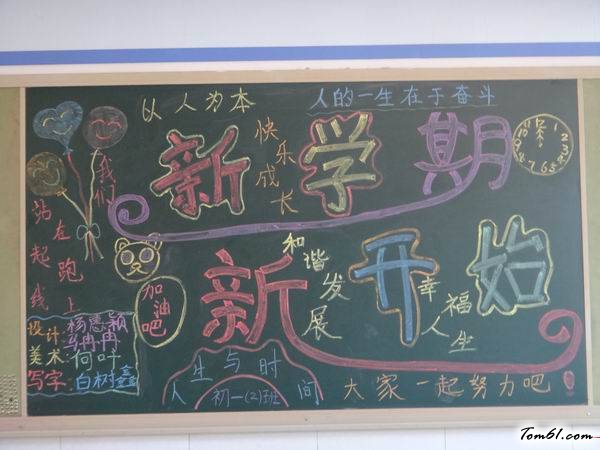 以人为本
人的一生在于奋斗
新学期
快乐成长
我们
站在起跑线上
新开始
和谐发展
幸福人生
加油吧
设计:杨慧颖
马冉冉
美术:何叶
写字:白树鑫
人生与时间
初一(2)班
大家一起努力吧
Tom61.com